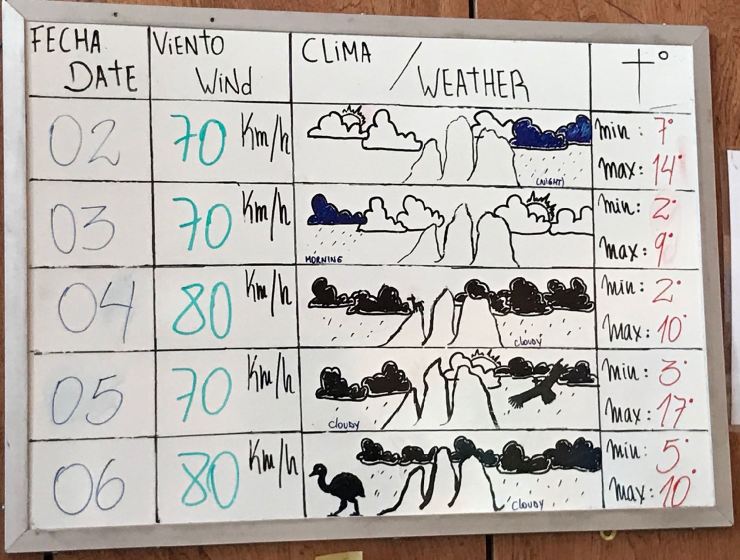 FECHA
DATE
ViENTO
WiNd
CLiMA
/ WEATHER
t°
02
70 Km/h
(NIGHT)
min: 7°
max: 14°
03
70 Km/h
MORNING
min: 2°
max: 9°
04
80 Km/h
cloudy
min: 2°
max: 10°
05
70 Km/h
cloudy
min: 3°
max: 17°
06
80 Km/h
cloudy
min: 5°
max: 10°